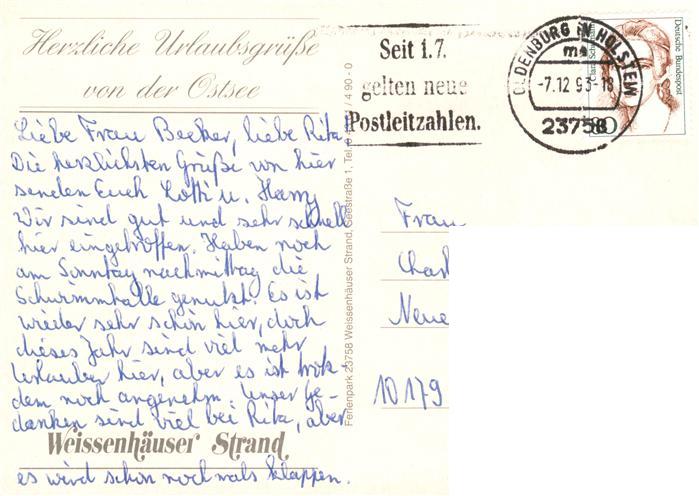 Herzliche Urlaubsgrüße
von der Ostsee
Seit 1.7.
gelten neue
Postleitzahlen.
OLDENBURG IN HOLSTEIN
ma
-7.12 93-18
23758
Deutsche Bundespost
80
Liebe Frau Becker, liebe Rita!
Die herzlichsten Grüße von hier
senden Euch Lotti u. Harry
Wir sind gut und sehr schnell
hier eingetroffen. Haben noch
am Sonntag nachmittag die
Schwimmhalle genutzt. Es ist
wieder sehr schön hier, doch
dieses Jahr sind viel mehr
Urlauber hier, aber es ist trotz-
dem noch angenehm. Unser Ge-
danken sind viel bei Rita, aber
Weissenhäuser Strand
es wird schon nochmals klappen.
Ferienpark 23758 Weissenhäuser Strand, Seestraße 1, Tel. / 4 90 - 0
Frau
Charl
Neue
10179